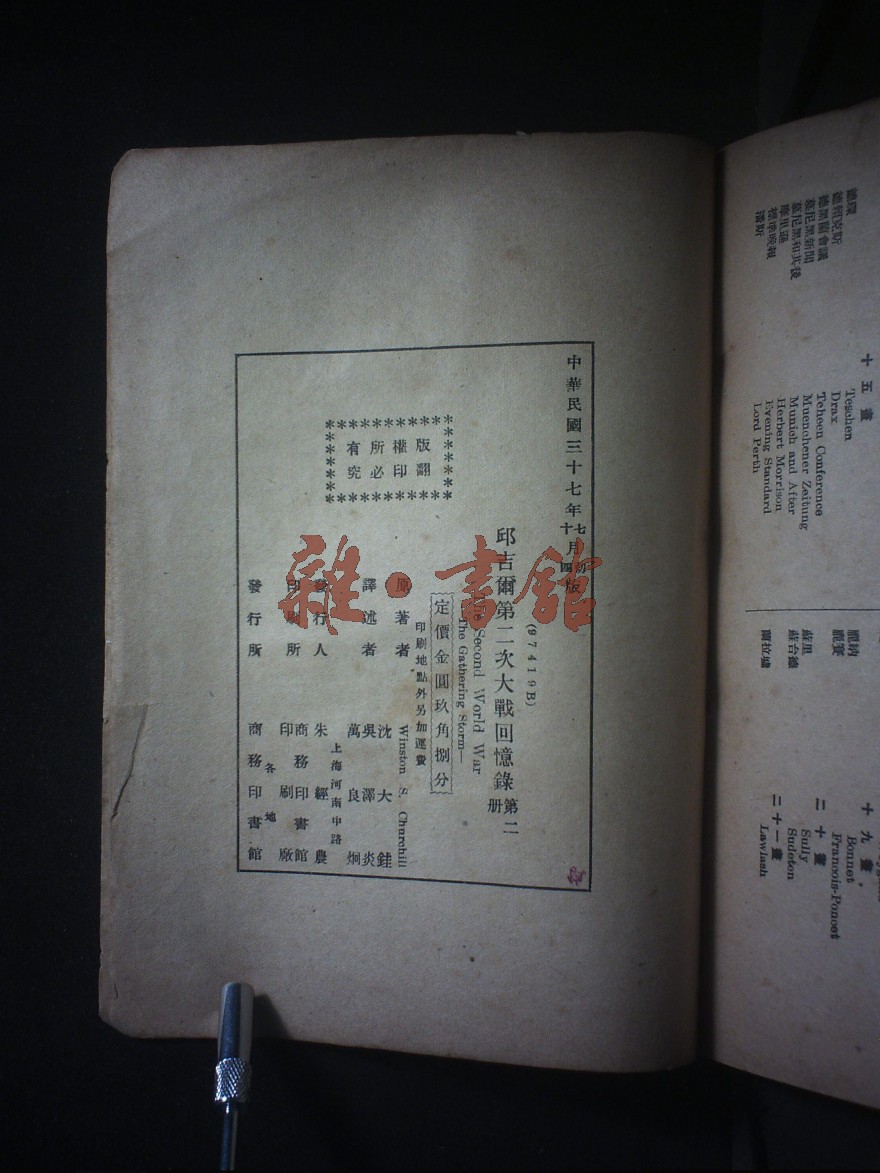 中華民國三十七年七月初版
十月四版
(97419B)
邱吉爾第二次大戰回憶錄 第二册
The Second World War
—The Gathering Storm—
定價金圓玖角捌分
印刷地點外另加運費
版權所有
翻印必究
原著者 Winston S. Churchill
譯述者 沈大銈
吳澤炎
萬良炯
發行人 朱經農
上海河南中路
印刷所 商務印書館
印刷廠
發行所 各地
商務印書館
十五畫
Teschen
Drax
德黑蘭會議 Teheen Conference
慕尼黑新聞 Muenchener Zeitung
慕尼黑和其後 Munich and After
摩里遜 Herbert Morrison
標準晚報 Evening Standard
潘斯 Lord Perth
十九畫
Bonnet
龐賽 Francois-Poncet
二十畫
蘇里 Sully
蘇台德 Sudeten
二十一畫
Lawlash
雜·書館